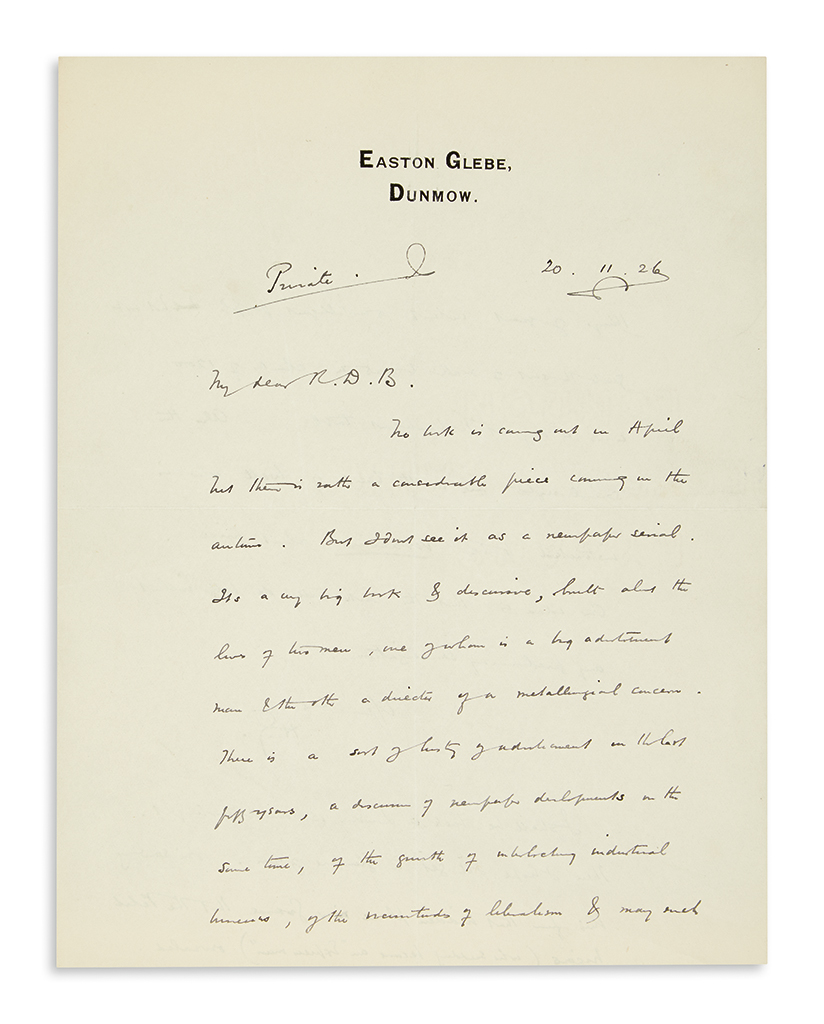 EASTON GLEBE,
DUNMOW.
Private. 20. 11. 26
My dear R. D. B.
No book is coming out in April
but there is rather a considerable piece coming in the
autumn. But I dont see it as a newspaper serial.
Its a very big book & discursive, built about the
lives of two men, one of whom is a big advertisement
man & the other a director of a metallurgical concern.
There is a sort of history of advertisement in the last
fifty years, a discussion of newspaper developments in the
same time, of the growth of interlocking industrial
businesses, of the vicissitudes of liberalism & many such